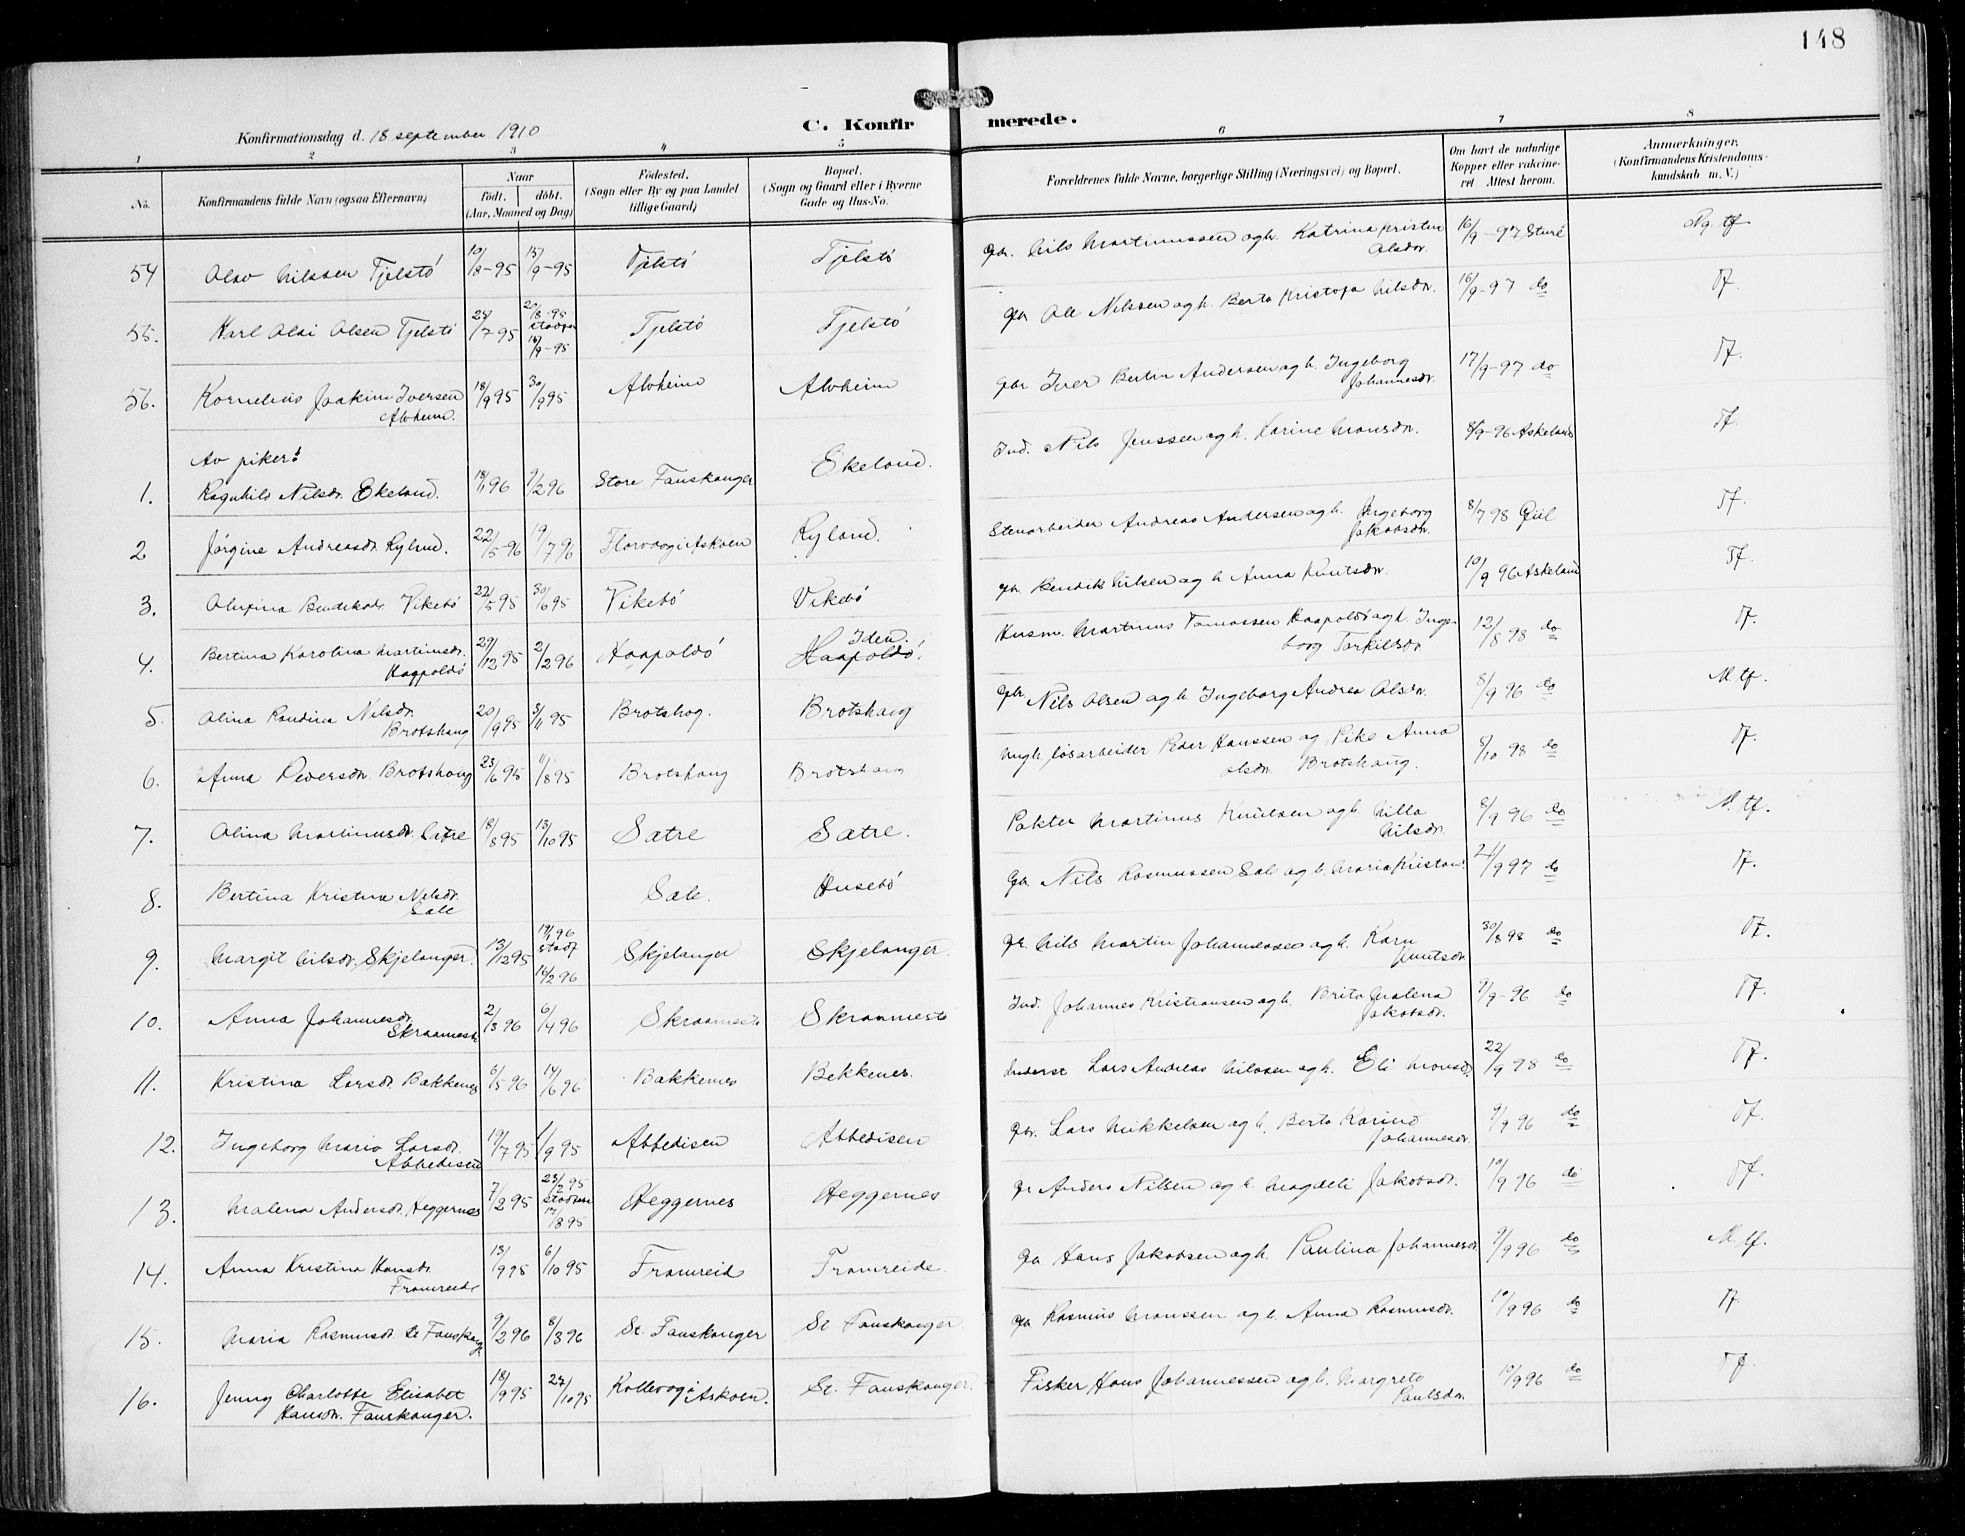 148
C. Konfirmerede.
Konfirmationsdag d. 18 september 1910
1 2 3 4 5 6 7 8
No.
Konfirmandens fulde Navn (ogsaa Efternavn)
Naar
födt. döbt.
(Aar, Maaned og Dag)
Födested.
(Sogn eller By og paa Landet
tillige Gaard)
Bopæl.
(Sogn og Gaard eller i Byerne
Gade og Hus-No.
Forældrenes fulde Navne, borgerlige Stilling (Næringsvei) og Bopæl.
Om havt de naturlige
Kopper eller vakcine-
ret Attest herom.
Anmærkninger.
(Konfirmandens Kristendoms-
kundskab m. V.)
54 Olav Nilssen Tjelstö 10/8-95 15/9-95 Tjelstö Tjelstö Gbr. Nils Martinussen og h. Katrina Kristen Olsdr. 16/9-97 Sture Ng. tf
55. Karl Olai Olsen Tjelstö /7 95 20/8-95 /9-95 Tjelstö Tjelstö Gbr Ole Nilssen og h. Berta Kristofa Nilsdr. 16/9-97 do Tf.
56. Kornelius Joakim Iversen Alvheim. 18/9 95 30/9 95 Alvheim Alvheim Gbr Iver Bertin Andersen og h. Ingeborg Johannesdr. 17/9-97 do Tf.
Av piker:
1. Ragnhild Nilsdr. Ekeland. 18/1 96 9/2 96 Store Fauskanger Ekeland. Ind. Nils Jenssen og h. Karine Monsdr. 8/9-96 Askeland Tf.
2 Jörgine Andreasdr. Ryland. 22/5-96 19/7 96 Florvaag i Askøen Ryland. Stenarbeider Andreas Andersen og h. Ingeborg Jakobsdr. 8/7 98 Tf.
3. Olufina Bendiksdr. Vikebö 22/5 95 30/6 95 Vikebö Vikebö Gbr. Bendik Nilsen og h Anna Knutsdr. 10/9 96 Askeland Tf.
4. Bertina Karolina Martinusdr. Haapoldö 29/12 95 2/2 96 Haapoldö Iden. Haapoldö. Husm. Martinus Tomassen Haapoldö og h. Ingeborg Torkilsdr. 12/8 98 do Tf.
5. Olina Nilsdr. Brotshaug 20/9 95 3/11 95 Brotshog. Brotshaug Gbr. Nils Olsen og h. Ingeborg Andrea Olsdr. 8/9 96 do M. tf.
6. Anna Pedersdr. Brotshaug 23/6 95 11/8 95 Brotshaug Brotshaug Ungk. løsarbeider Peder Hanssen og Pike Anna Olsdr. Brotshaug. 8/10 98 do Tf.
7. Olina Martinusdr. Sætre 18/8 95 13/10 95 Sætre Sætre. Pakter Martinus Knutsen og h. Nilla Nilsdr. 8/9 96 do M. tf.
8. Bertina Kristina Nilsdr. Sale Sale. Husebö Gbr. Nils Rasmussen Sale og h. Maria /9 97 do Tf.
9. Margit Nilsdr. Skjelanger. 13/12 95 19/1 96 stadf 16/2 96 Skjelanger Skjelanger. Gbr. Nils Martin Johannessen og h. Karn Knutsdr. 30/8 98 do Tf.
10. Anna Johannesdr. Skraamestö 2/3 96 6/4 96 Skraamestö Skraamestö Ind. Johannes Kristiansen og h. Brita Malena Jakobsdr. 9/9-96 do Tf.
11. Kristina Larsdr. Bakkenes 6/5 96 14/6 96 Bakkenes Bekkenes. Inderst Lars Andreas Nilssen og h. Eli Monsdr. 22/9 98 do Tf.
12. Ingeborg Maria Larsdr. Abbedisen 19/7 95 1/9 95 Abbedisen Abbedisen Gbr. Lars Mikkelsen og h. Berta Karine Johannesdr. 9/9 96 do Tf.
13. Malena Andersdr. Heggernes 7/2 95 23/2 95 /8 95 Heggernes Heggernes Gbr Anders Nilsen og h. Magdeli Jakobsdr. 10/9 96 do Tf.
14. Anna Kristina Hansdr. Fromreide 13/9 95 6/10 95 Fromreid Fromreide. Gbr Hans Jakobsen og h. Paulina Johannesdr. 9/9 96 do M. tf.
15. Maria Rasmusdr. St Fauskanger 9/2 96 8/3 96 St. Fauskanger St Fauskanger Gbr Rasmus Monssen og h. Anna Rasmusdr. 10/9 96 do Tf.
16. Jenny Charlotte Elisabet Hansdr. Fauskanger. 18/9 95 27/10 95 Kollevaag i Askøen. St. Fauskanger. Fisker Hans Johannessen og h. Margreta Paulsdr. 10/9 96 do Tf.